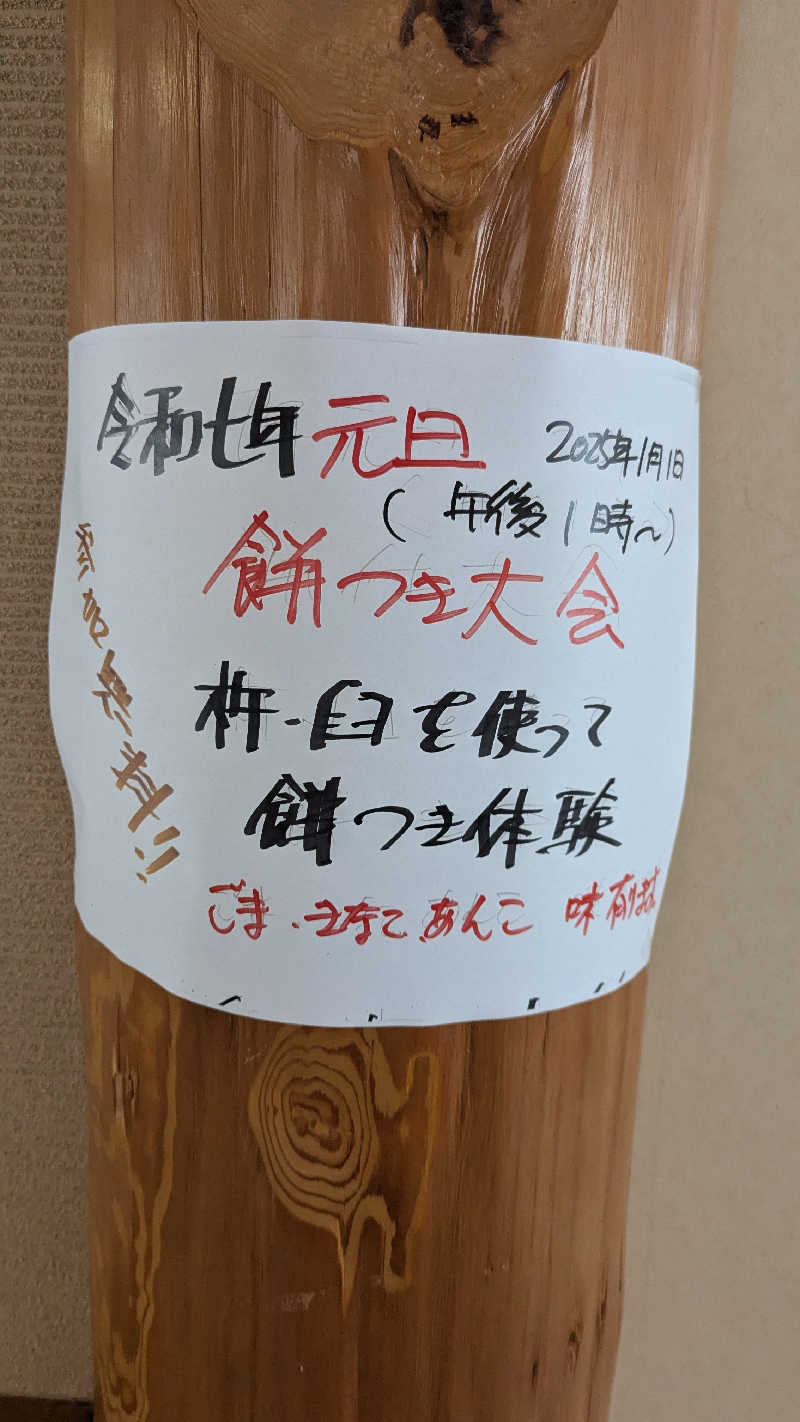 令和七年 元旦 2025年1月1日
(午後1時~)
餅つき大会
杵・臼を使って
餅つき体験
ごま、きなこ、あんこ 味有ります
参加無料!!